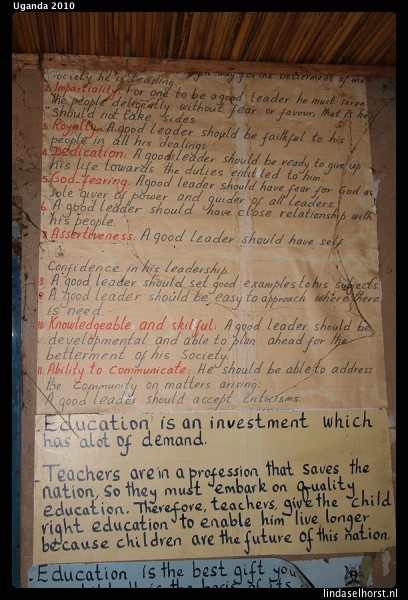 Uganda 2010
Society he is leading way for the betterment of the
2. Impartiality: For one to be a good leader he must serve
the people delegently without fear or favour, that is he
should not take sides
3. Royalty: A good leader should be faithful to his
people in all his dealings.
4. Dedication: A good leader should be ready to give up
his life towards the duties entitled to him.
5. God fearing: A good leader should have fear for God as
sole giver of power and guider of all leaders.
6. A good leader should have close relationship with
his people.
7. Assertiveness: A good leader should have self
Confidence in his leadership
8. A good leader should set good examples to his subjects
9. A good leader should be easy to approach where there
is need.
10. Knowledgeable and skilful: A good leader should be
developmental and able to plan ahead for the
betterment of his Society.
11. Ability to communicate: He should be able to address
the Community on matters arising.
A good leader should accept criticisms.
Education is an investment which
has alot of demand.
- Teachers are in a profession that saves the
nation, so they must embark on quality
education. Therefore, teachers, give the child
right education to enable him live longer
because children are the future of this nation.
Education is the best gift you
is the basis of its
lindaselhorst.nl